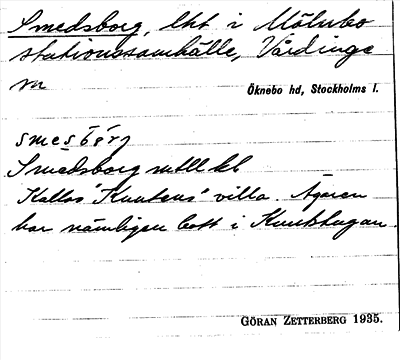 Smedsborg, lht i Mölnbo
stationssamhälle, Vårdinge
sn
Öknebo hd, Stockholms l.
Smedsborg mtll kl
Kallas "Knutens" villa. Ägaren
har nämligen bott i Knutstugan.
GÖRAN ZETTERBERG 1935.